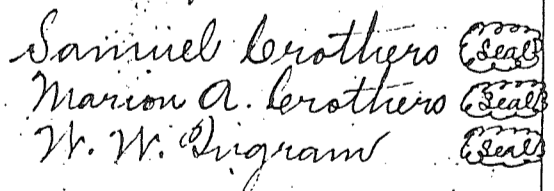 Samuel Crothers (Seal)
Marion A. Crothers (Seal)
W. W. Ingram (Seal)